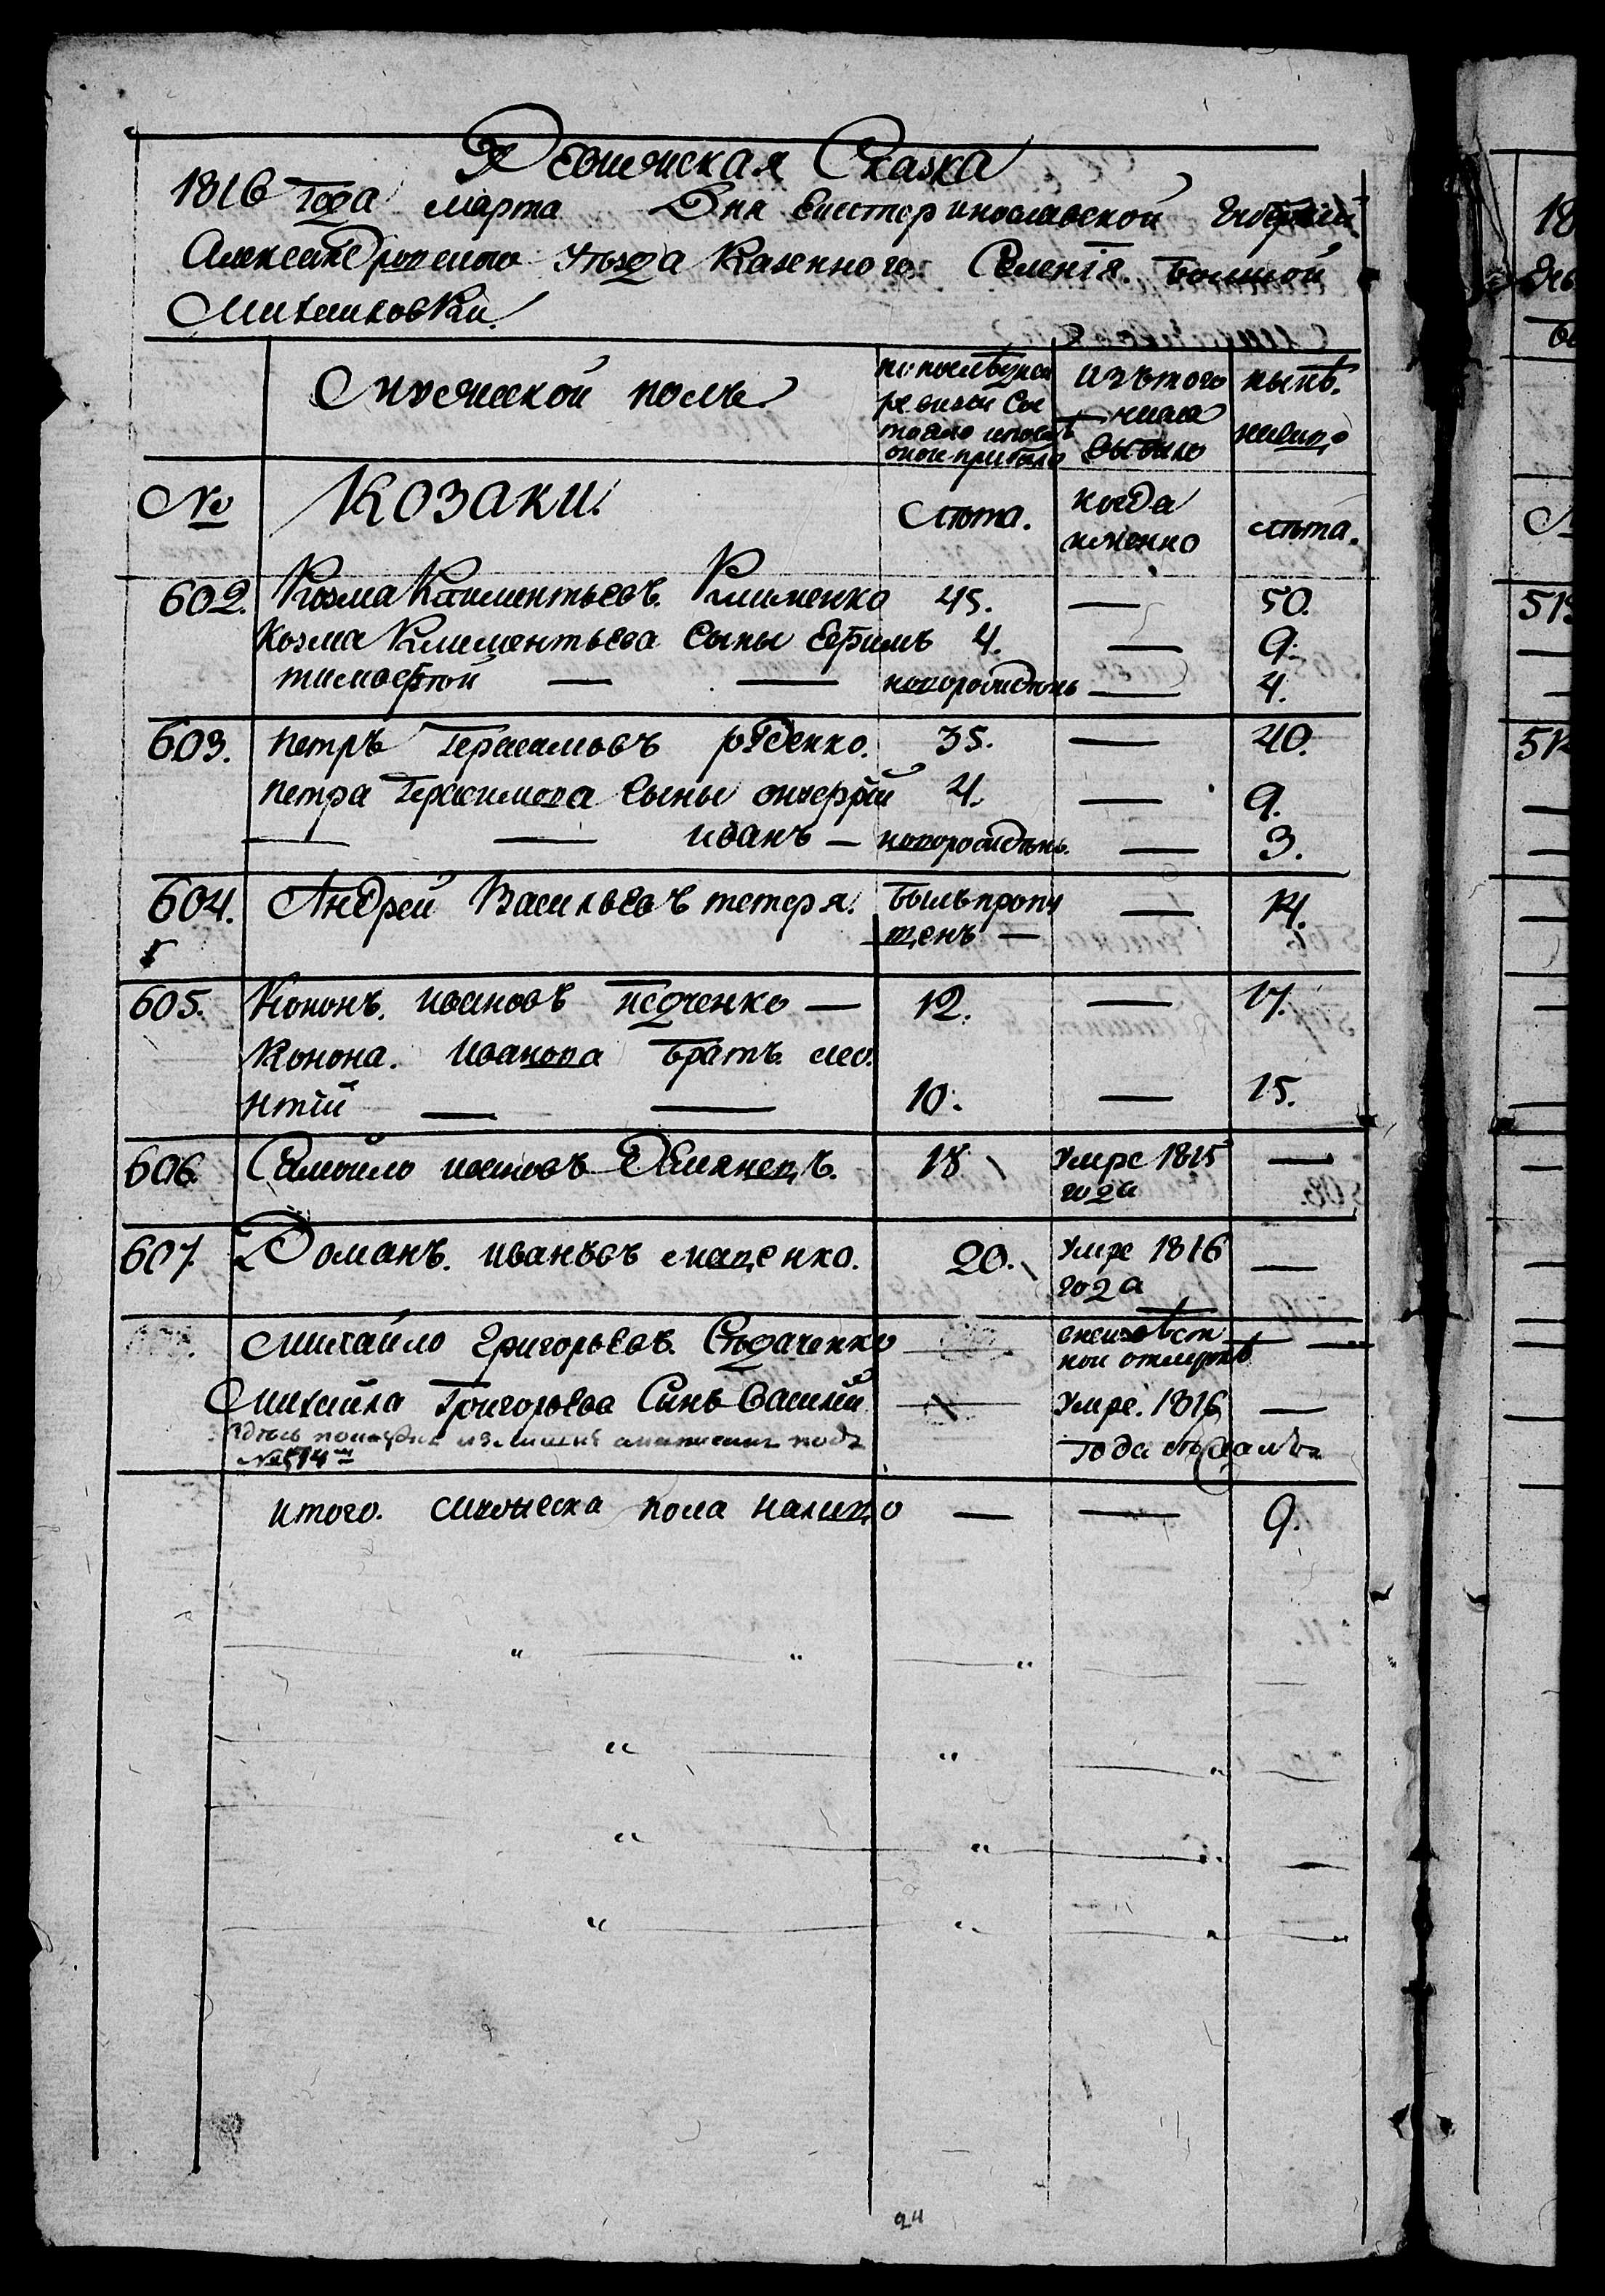 Ревижская Сказка
1816 года марта Дня Екатеринославской Губернии
Александровского уъзда казенного Селенія Большой
Михайловки.
Мужеской полъ
по последней ревизіи состояло и после оной прибыло
Изътого числа выбыло
нынѣ налицо
№ Козаки. Лѣта. когда именно лѣта.
602. Козма Климентьевъ Клименко 45. — 50.
Козма Климентьева сыны Ефимъ 4. — 9.
тимофтой — — новорожденъ — 4.
603. петръ Герасимовъ рѣденко. 35. — 40.
петра Герасимова сыны 4. — 9.
— — иванъ — новорожденъ. — 3.
604. Андрей Васильевъ тетеря. былъ пропу — 14.
щенъ —
605. Кононъ. ивановъ педченко — 12. — 17.
Конона. Иванова братъ лео
нтій — — 10. — 15.
606. Самойло ивановъ Демянецъ. 18 Умре 1815 —
года
607. Романъ. ивановъ маценко. 20. Умре 1816 —
года
Михайло Григорьевъ —
Михайла Григорьева Синъ Василій Умре. 1816 —
Здесь
№ 514 года
итого. мужеска пола налицо — — 9.
24
18
519
51